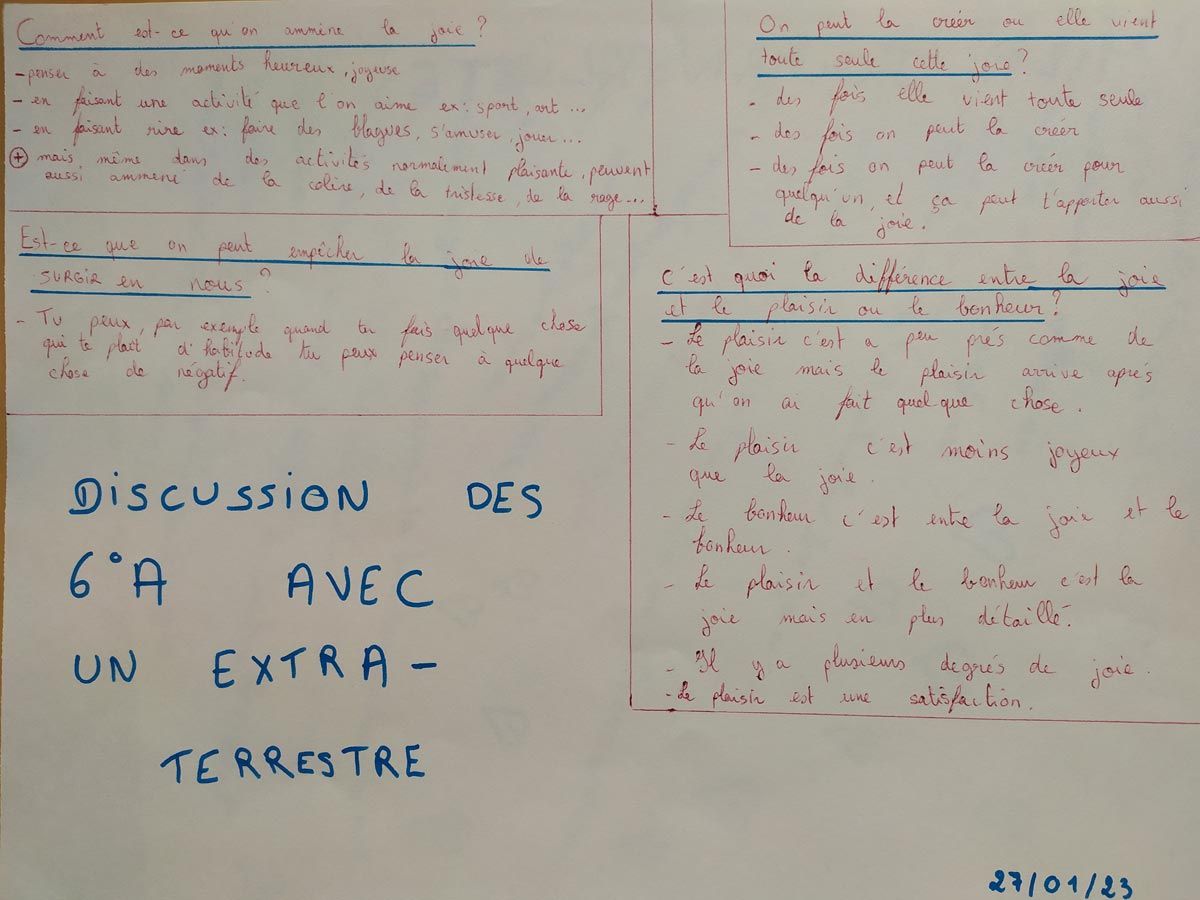 Comment est-ce qu'on ammène la joie ?
- penser à des moments heureux, joyeuse
- en faisant une activité que l'on aime ex: sport, art ...
- en faisant rire ex: faire des blagues, s'amuser, jouer ...
+ mais, même dans des activités normalement plaisante, peuvent
aussi ammené de la colère, de la tristesse, de la rage ...
On peut la créer ou elle vient
toute seule cette joie ?
- des fois elle vient toute seule
- des fois on peut la créer
- des fois on peut la créer pour
quelqu'un, et ça peut t'apporter aussi
de la joie.
Est-ce que on peut empêcher la joie de
SURGIR en nous ?
- Tu peux, par exemple quand tu fais quelque chose
qui te plait d'habitude tu peux penser à quelque
chose de négatif.
C'est quoi la différence entre la joie
et le plaisir ou le bonheur ?
- Le plaisir c'est a peu prés comme de
la joie mais le plaisir arrive aprés
qu'on ai fait quelque chose.
- Le plaisir c'est moins joyeux
que la joie.
- Le bonheur c'est entre la joie et le
bonheur.
- Le plaisir et le bonheur c'est la
joie mais en plus détaillé.
- Il y a plusieurs degrés de joie.
- Le plaisir est une satisfaction.
DISCUSSION DES
6°A AVEC
UN EXTRA-
TERRESTRE
27/01/23